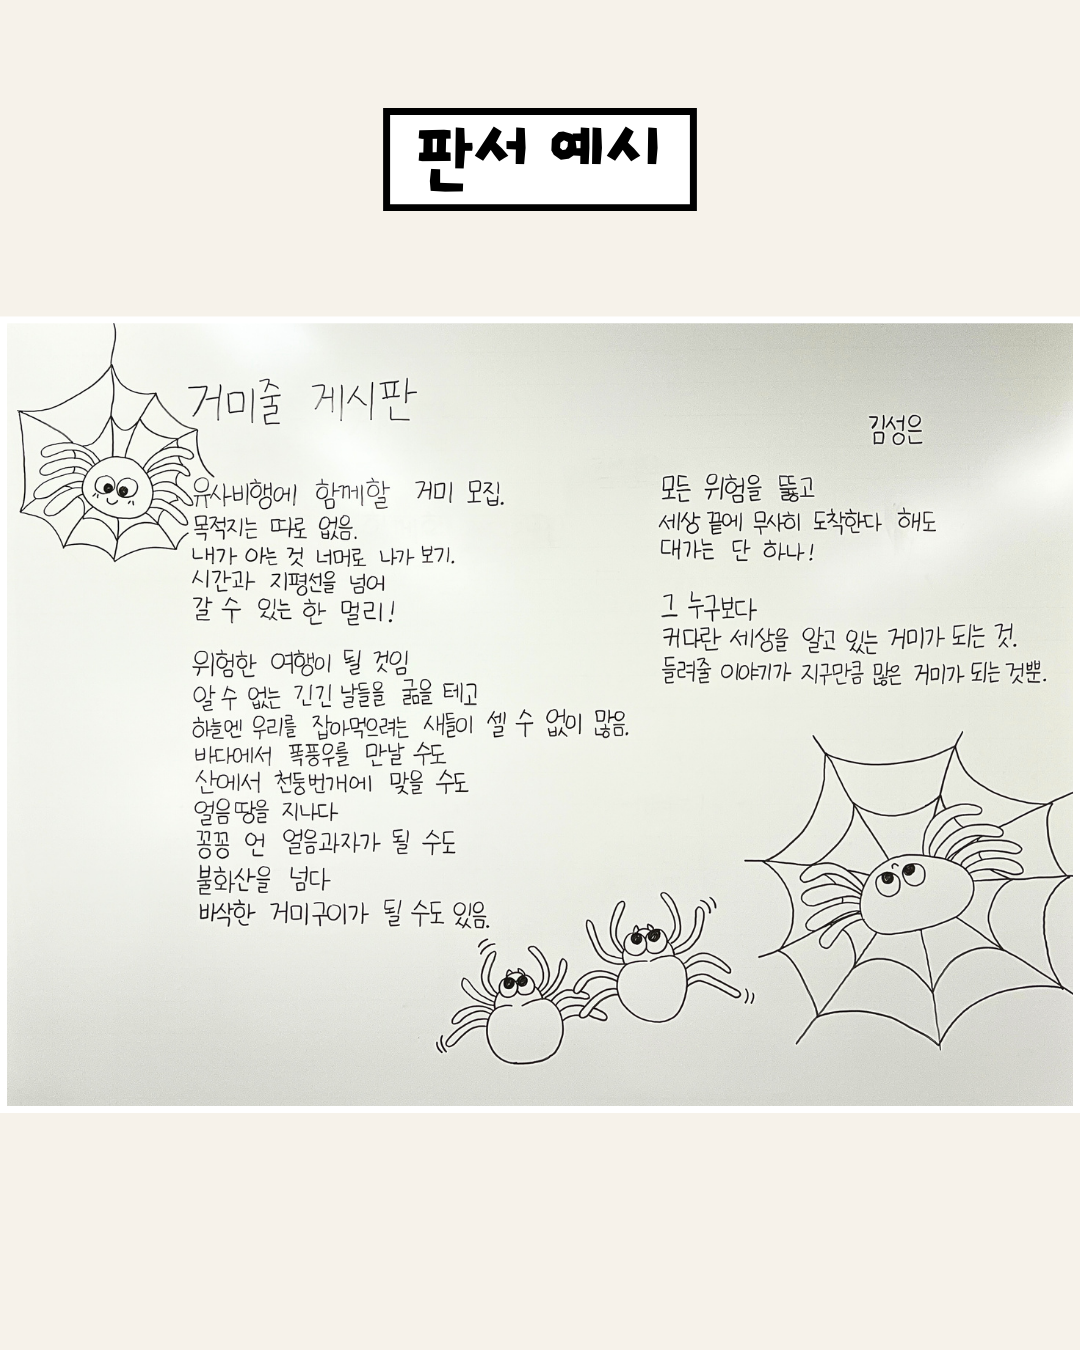 판서 예시
거미줄 게시판
김성은
유사비행에 함께할 거미 모집.
목적지는 따로 없음.
내가 아는 것 너머로 나가 보기.
시간과 지평선을 넘어
갈 수 있는 한 멀리!
위험한 여행이 될 것임
알 수 없는 긴긴 날들을 굶을 테고
하늘엔 우리를 잡아먹으려는 새들이 셀 수 없이 많음.
바다에서 폭풍우를 만날 수도
산에서 천둥번개에 맞을 수도
얼음땅을 지나다
꽁꽁 언 얼음과자가 될 수도
불화산을 넘다
바삭한 거미구이가 될 수도 있음.
모든 위험을 뚫고
세상 끝에 무사히 도착한다 해도
대가는 단 하나!
그 누구보다
커다란 세상을 알고 있는 거미가 되는 것.
들려줄 이야기가 지구만큼 많은 거미가 되는 것뿐.